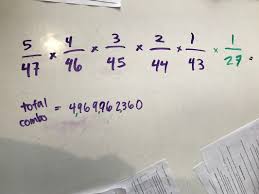 5/47 × 4/46 × 3/45 × 2/44 × 1/43 × 1/27 =
total combo = 4,969,962,360